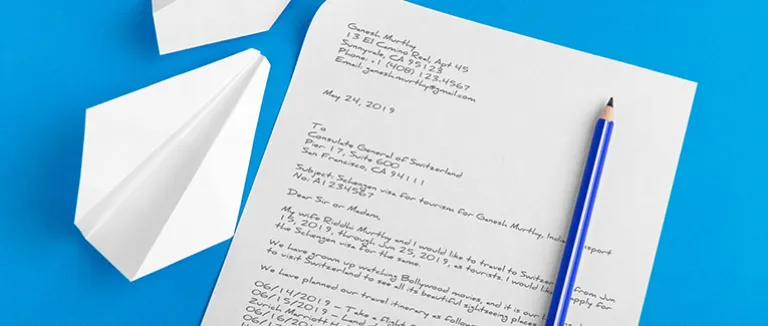 Ganesh Murthy
13 El Camino Real, Apt 45
Sunnyvale, CA 95123
Phone: +1 (408) 123-4567
Email: ganesh.murthy@gmail.com
May 24, 2019
To
Consulate General of Switzerland
Pier 17, Suite 600
San Francisco, CA 94111
Subject: Schengen visa for tourism for Ganesh Murthy, Indian Passport
No: A1234567
Dear Sir or Madam,
My wife Riddhi Murthy and I would like to travel to Switzerland from Jun
15, 2019, through Jun 25, 2019, as tourists. I would like apply for
the Schengen visa for the same.
We have grown up watching Bollywood movies, and it is our
to visit Switzerland to see all its beautiful sightseeing places
We have planned our travel itinerary as follows
06/14/2019 – Take a flight
06/15/2019 – Land
Zurich Marriott H
06/16/2019